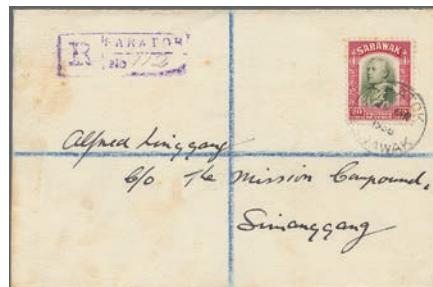 R SARATOK
No 112
SARAWAK
20
SARAWAK
Alfred Linggang
c/o The Mission Compound,
Simanggang